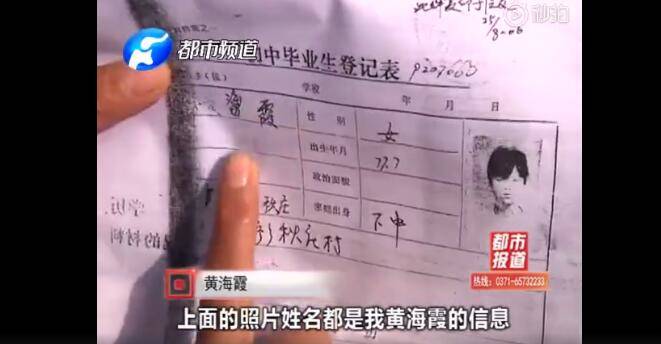 秒拍
都市频道
中毕业生登记表 9207663
学校 年 月 日
海霞 性别 女
出生年月 77.7
政治面貌
秋庄 家庭出身 下中
乡秋庄村
都市报道
热线：0371-65732233
黄海霞
上面的照片姓名都是我黄海霞的信息